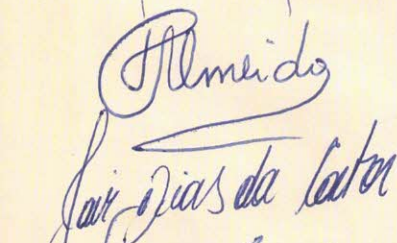 Almeida
Jair Dias da Costa